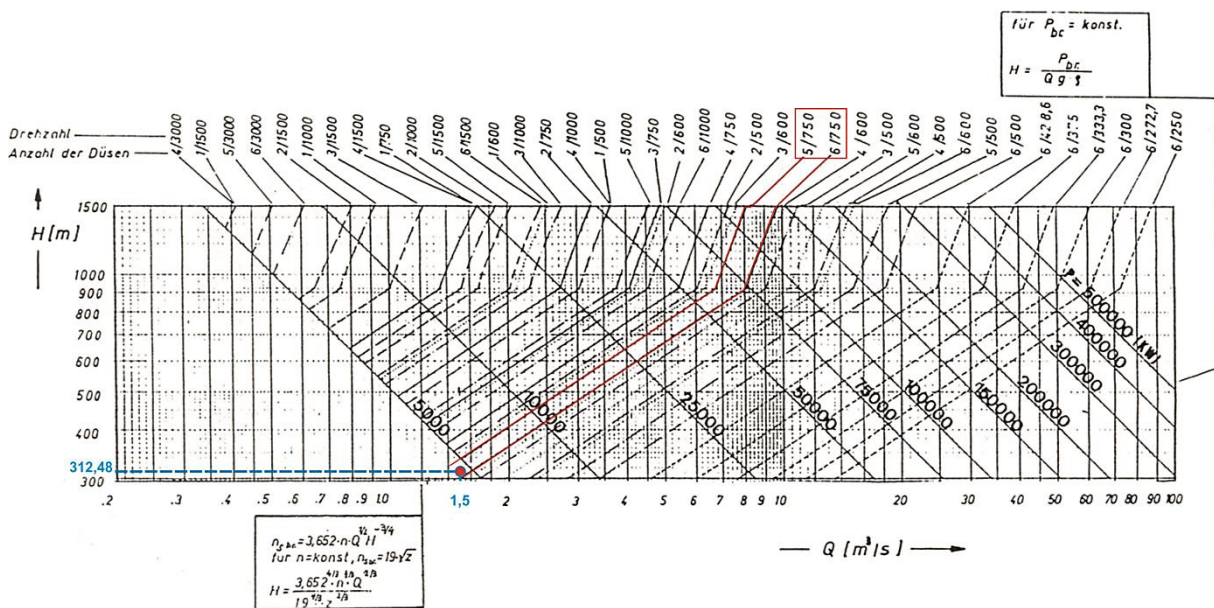 für P_bc = konst.
H = P_bc / Q g·ϱ
Drehzahl
Anzahl der Düsen
4/3000 1/1500 5/3000 6/3000 2/1500 1/1000 3/1500 4/1500 1/750 2/1000 5/1500 6/1500 1/600 3/1000 2/750 4/1000 1/500 5/1000 3/750 2/600 6/1000 4/750 2/500 3/600 5/750 6/750 4/600 3/500 5/600 4/500 6/600 5/500 6/500 6/428,6 6/375 6/333,3 6/300 6/272,7 6/250
H [m]
1500
1000
900
800
700
600
500
400
312,48
300
5000 10000 25000 50000 75000 100000 150000 200000 300000 400000 P = 500000 [KW]
.2 .3 .4 .5 .6 .7 .8 .9 1.0 1,5 2 3 4 5 6 7 8 9 10 20 30 40 50 60 70 80 90 100
Q [m³/s]
n_sbc = 3,652·n·Q^1/2 H^-3/4
für n=konst, n_sbc=19·√z
H = 3,652^4/3·n^4/3·Q^2/3 / 19^4/3·z^2/3